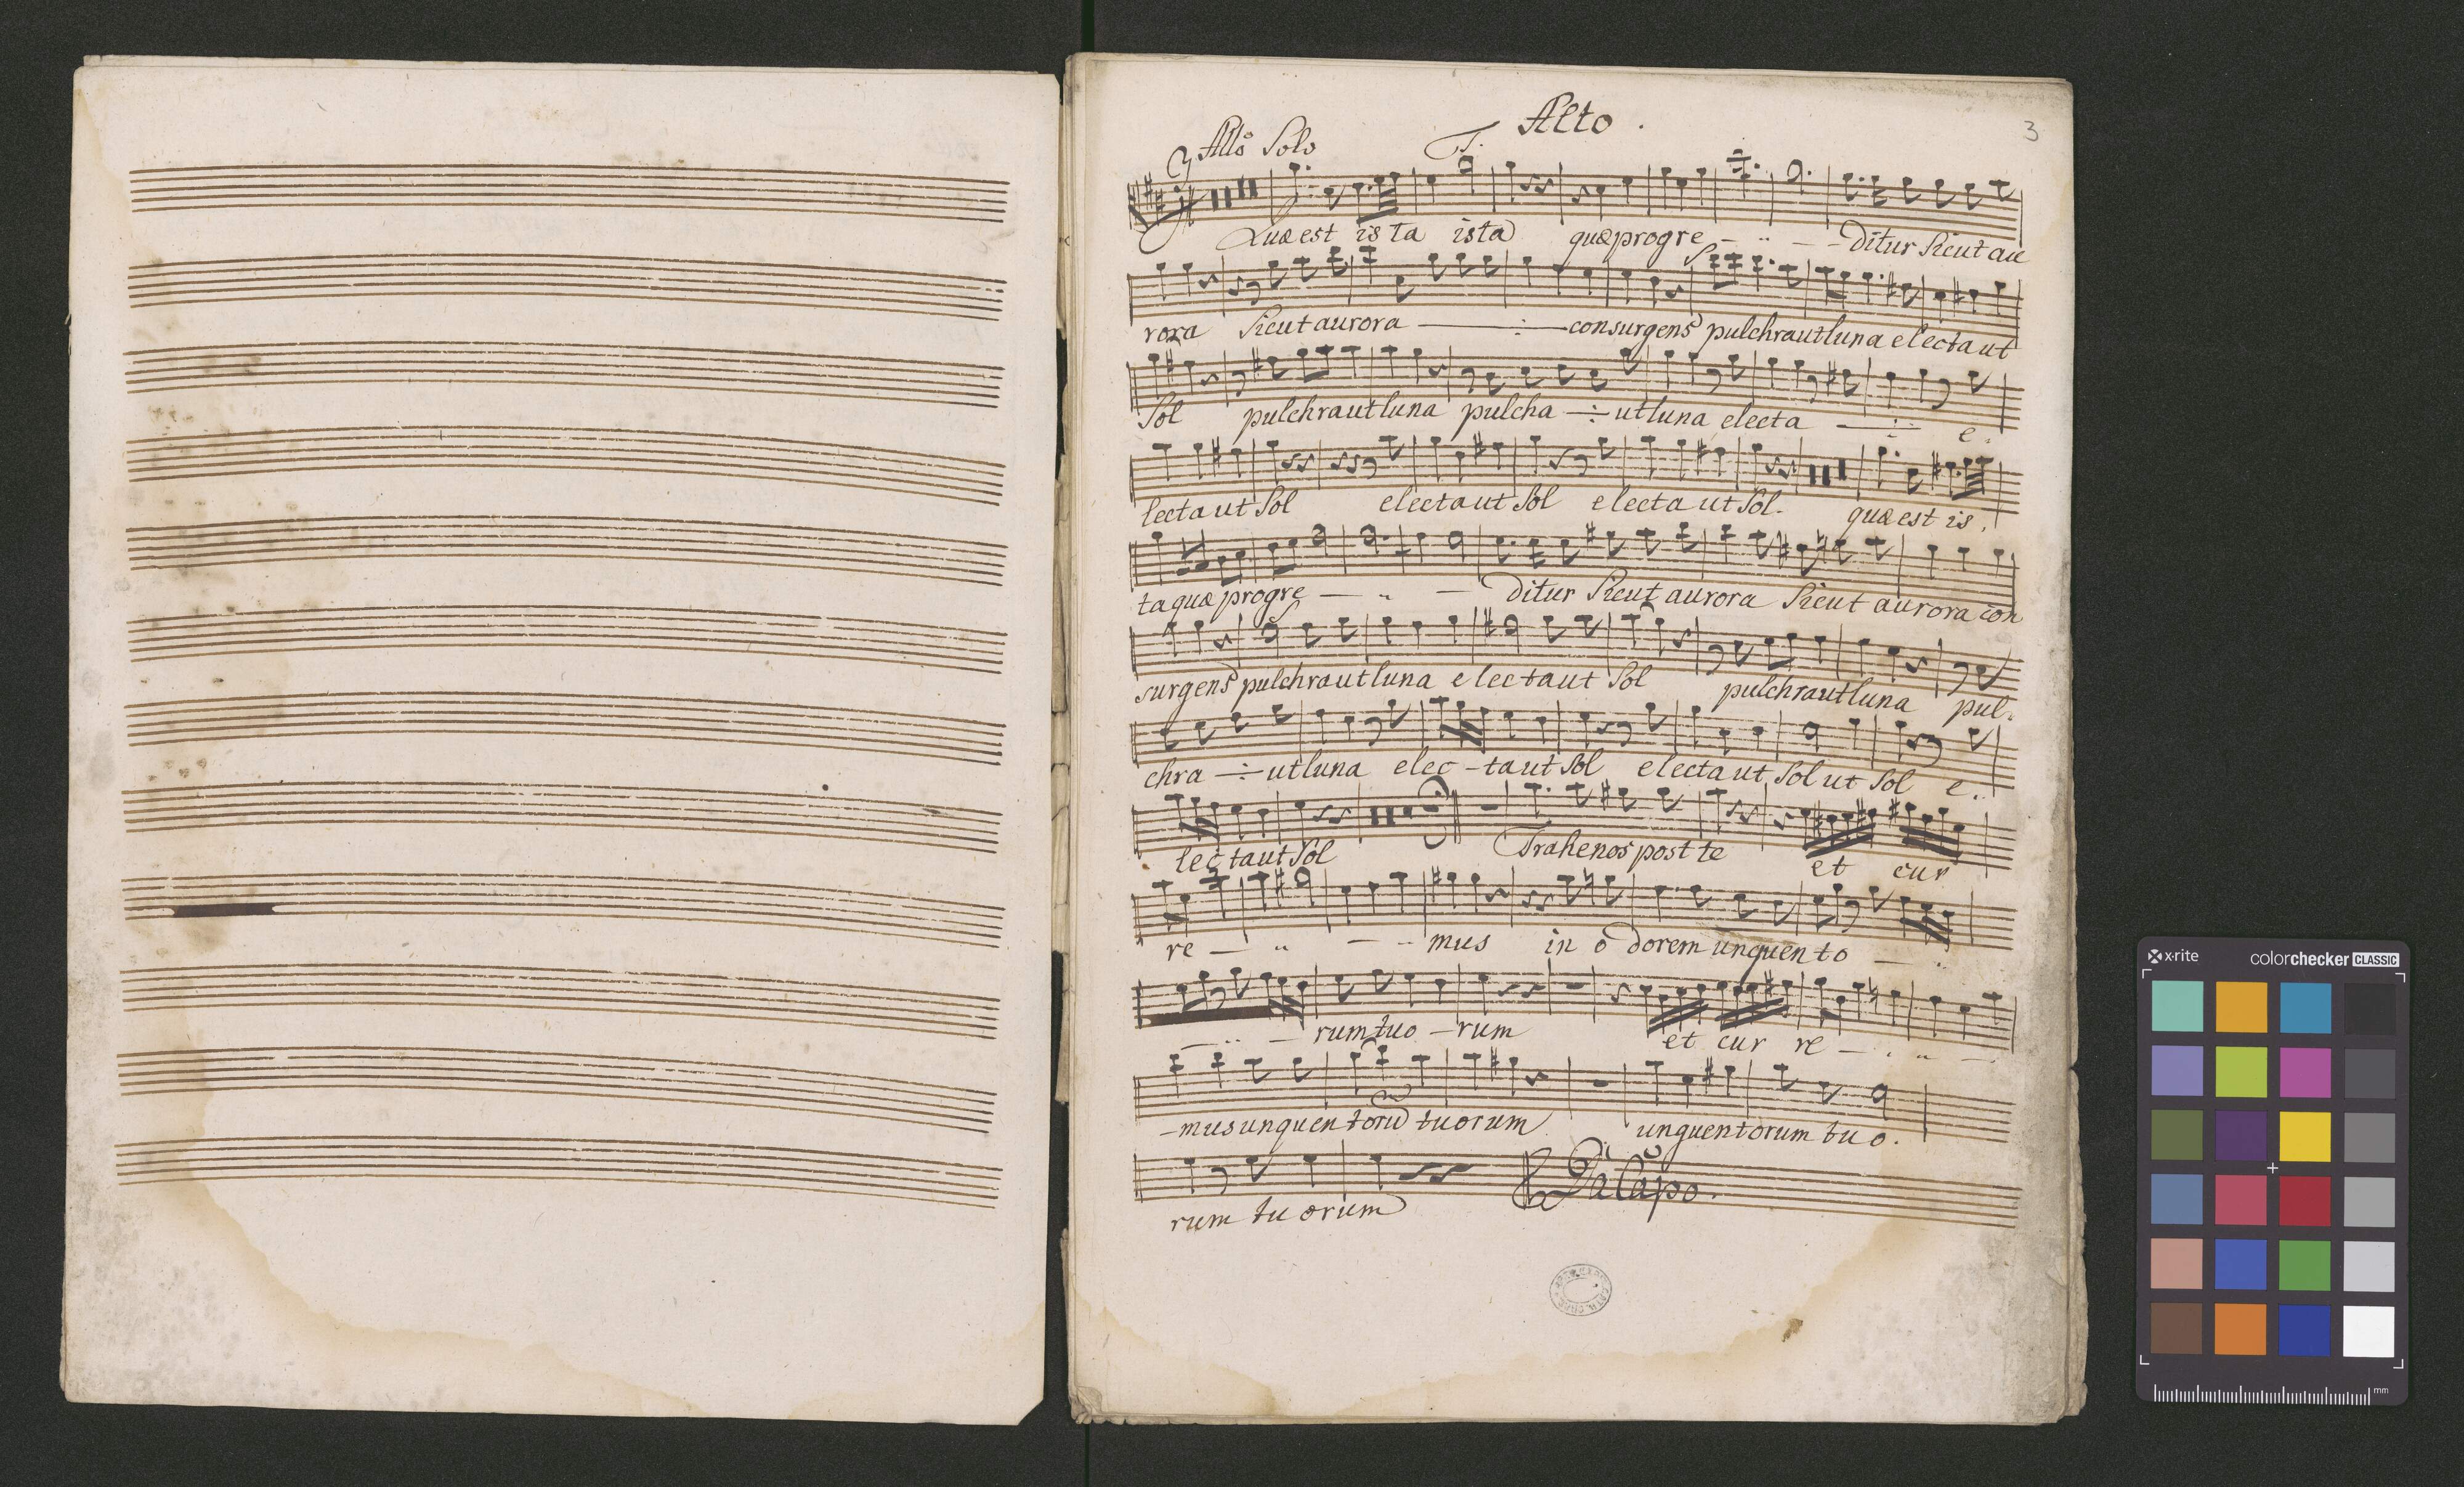 Alto.
3
Allo Solo
T.
Quæ est is ta ista quæ progre - - - ditur Sicut au
rora Sicut aurora — ÷ — consurgens pulchra ut luna electa ut
Sol pulchra ut luna pulcha — ÷ ut luna electa — ÷ e.
lecta ut Sol electa ut Sol electa ut Sol. quæ est is.
ta quæ progre — " — ditur Sicut aurora Sicut aurora con
surgens pulchra ut luna electa ut Sol pulchra ut luna pul.
chra — ÷ ut luna elec - ta ut Sol electa ut Sol ut Sol e.
lec ta ut Sol Trahe nos post te et cur
re — " — " mus in odorem unguento — "
— " — rum tuo - rum et cur re — " —
- mus unguentorū tuorum unguentorum tuo.
rum tuorum Da Capo.
x-rite
colorchecker CLASSIC
mm